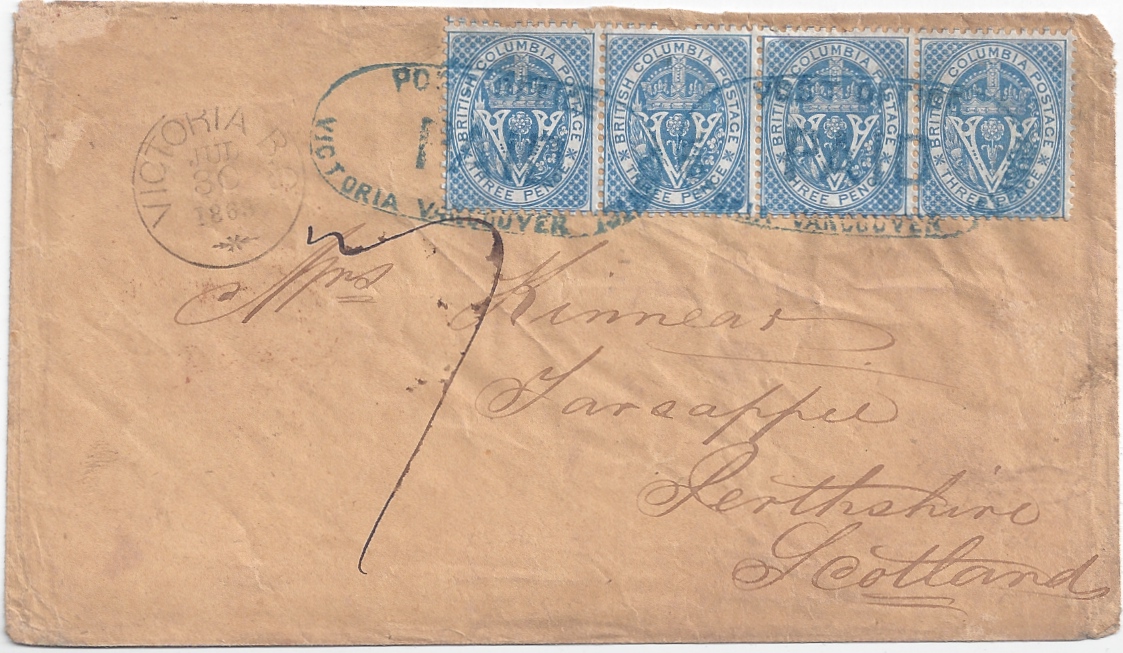 BRITISH COLUMBIA POSTAGE
THREE PENCE
BRITISH COLUMBIA POSTAGE
THREE PENCE
BRITISH COLUMBIA POSTAGE
THREE PENCE
BRITISH COLUMBIA POSTAGE
THREE PENCE
POST OFFICE
PAID
VICTORIA VANCOUVER
POST OFFICE
PAID
VANCOUVER
VICTORIA B C
JUL
30
1868
7
Mrs Kinnear
Tarsappie
Perthshire
Scotland